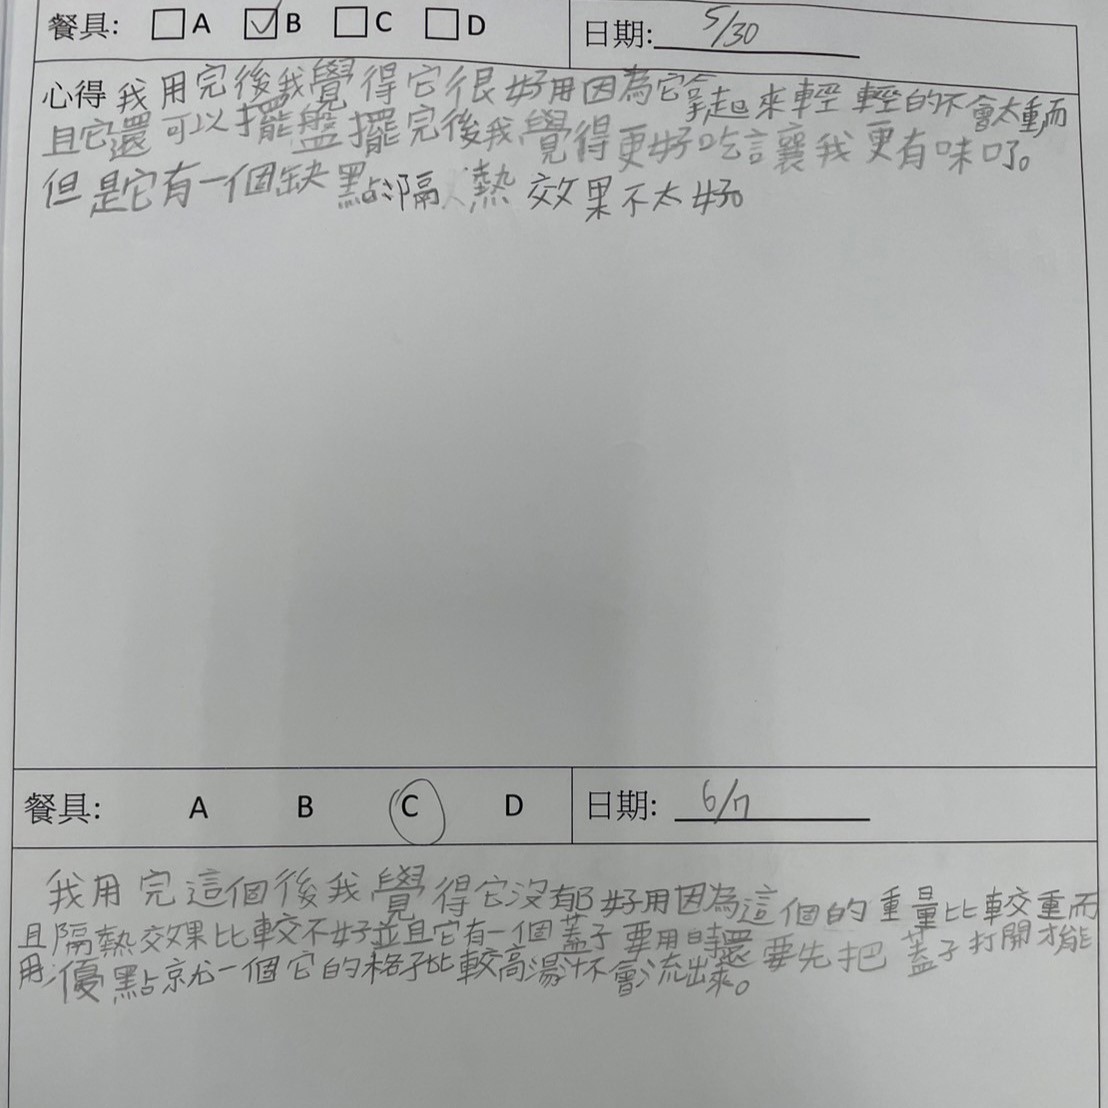 餐具: □A ☑B □C □D 日期: 5/30
心得 我用完後我覺得它很好用因為它拿起來輕輕的不會太重而
且它還可以擺盤擺完後我覺得更好吃讓我更有味口。
但是它有一個缺點隔熱效果不太好。
餐具: A B C D 日期: 6/7
我用完這個後我覺得它沒那好用因為這個的重量比較重而
且隔熱效果比較不好並且它有一個蓋子要用時還要先把蓋子打開才能
用,優點就一個它的格子比較高湯汁不會流出來。